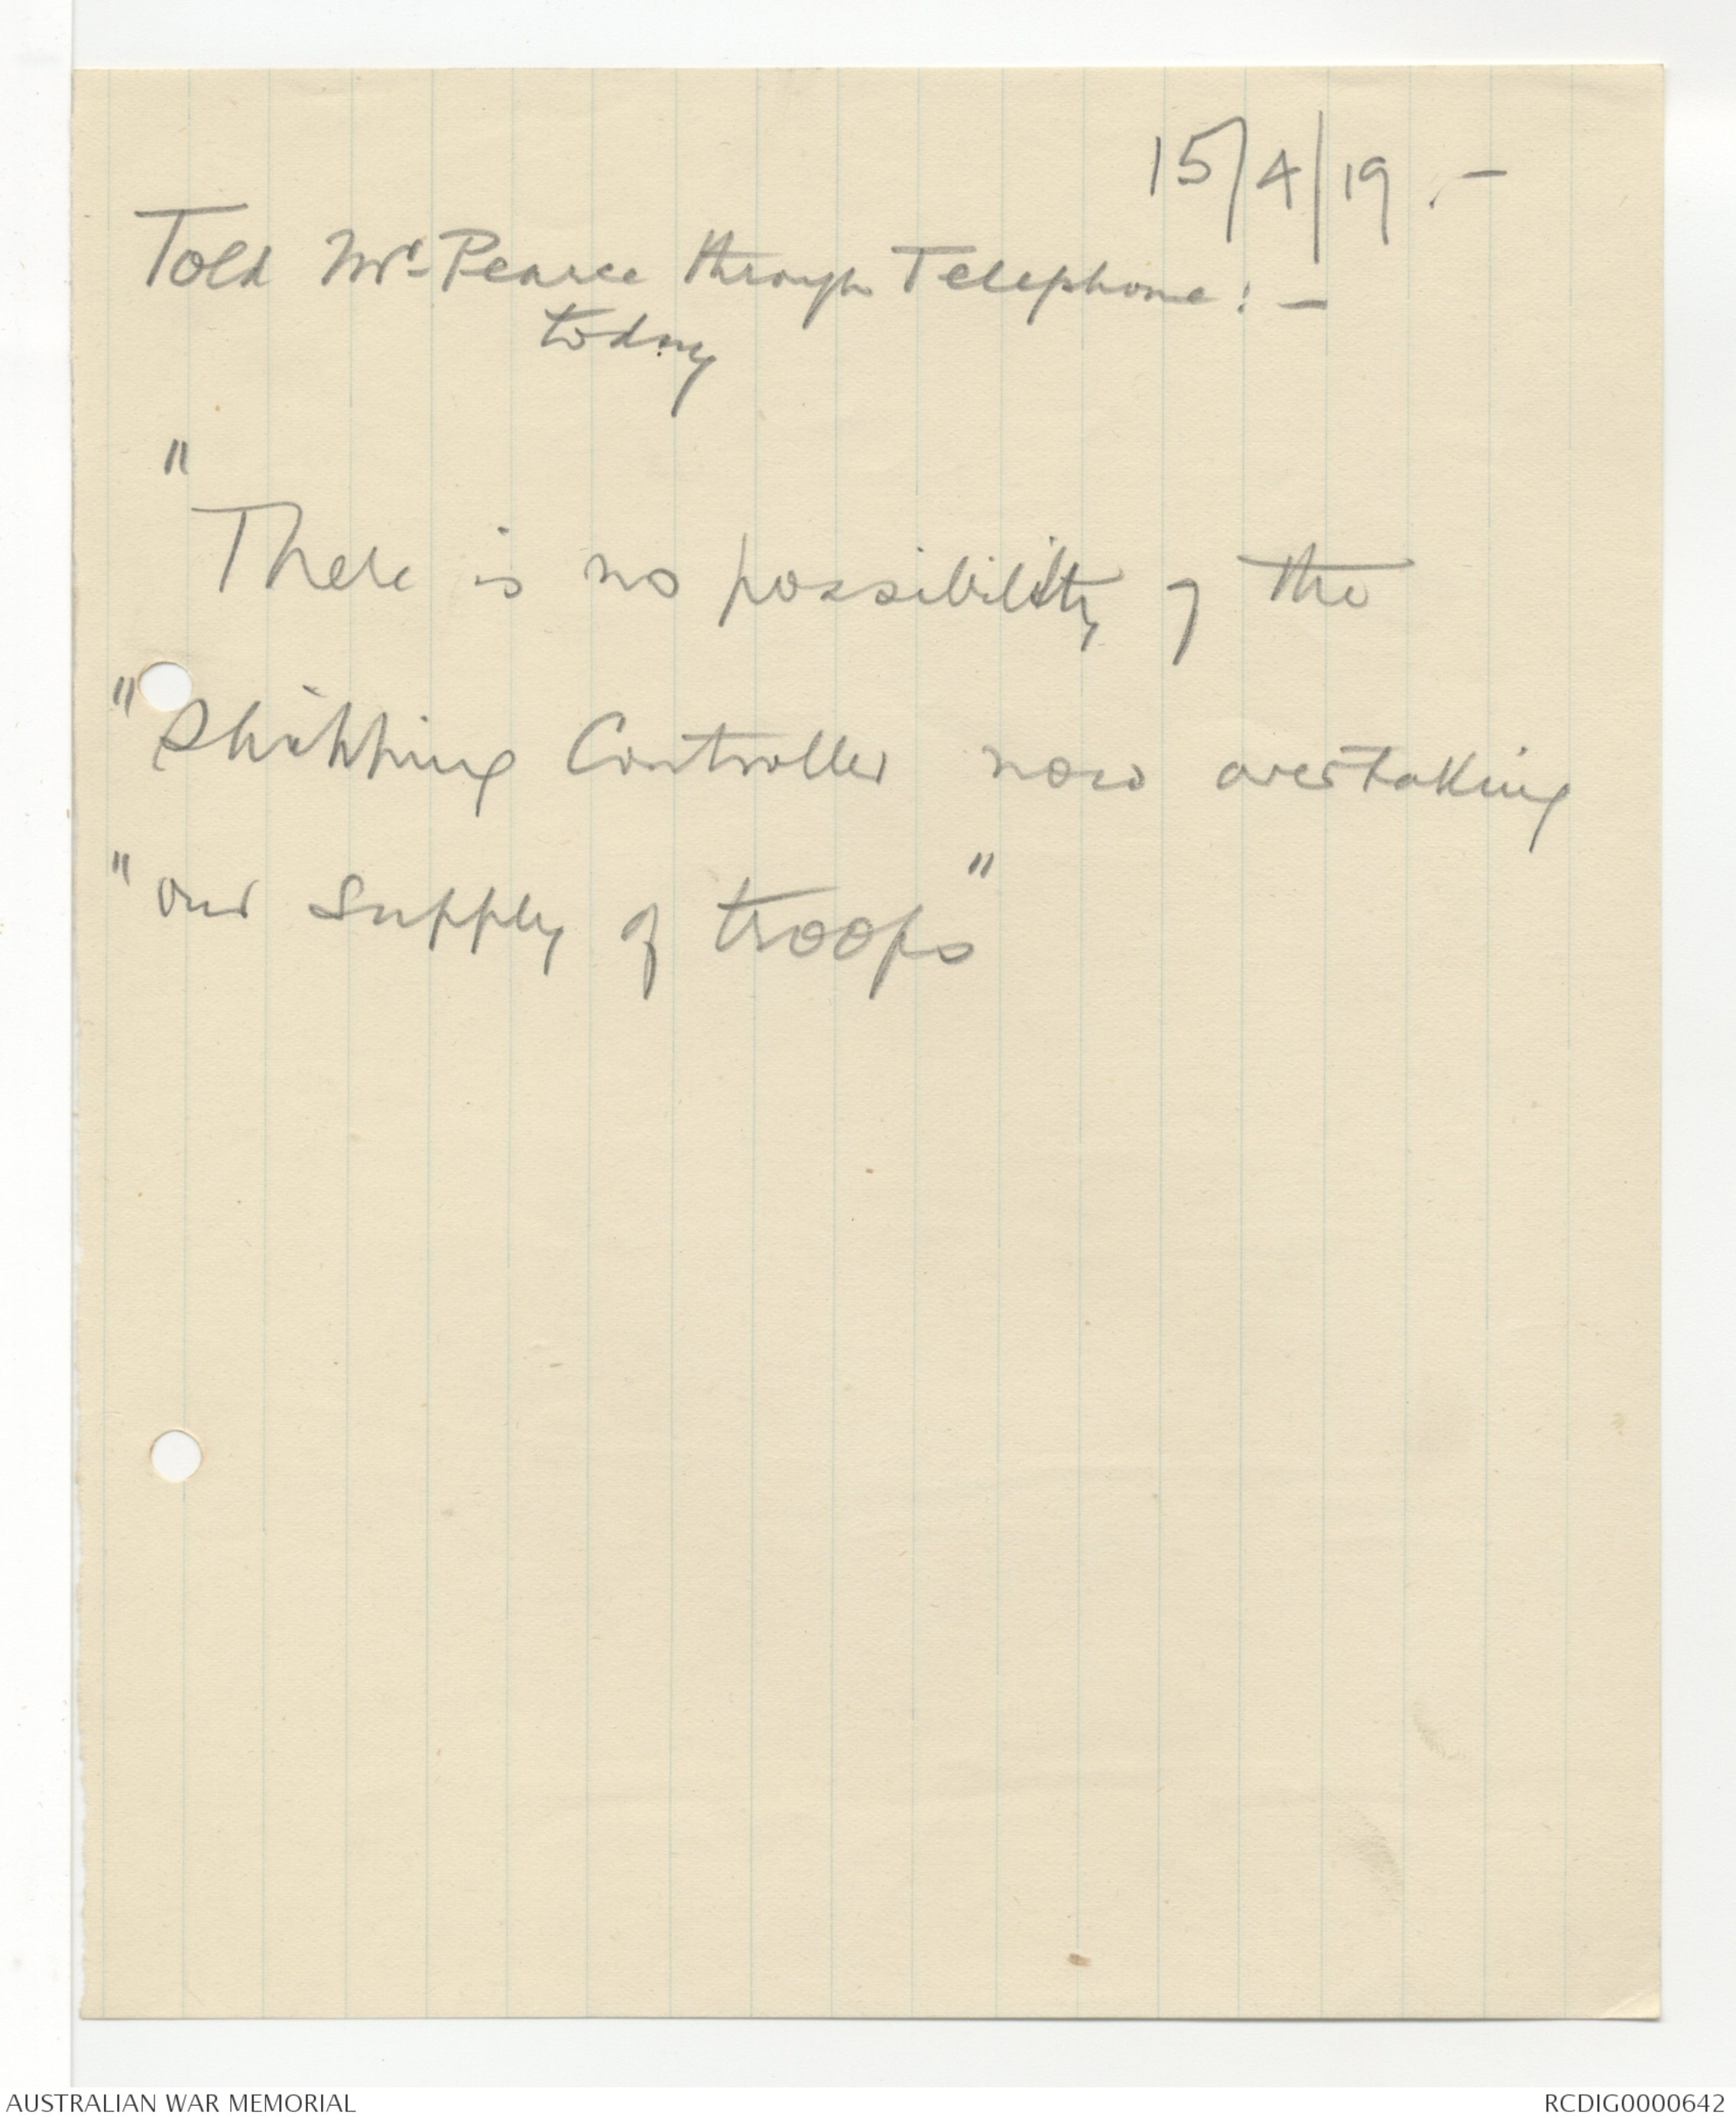 15/4/19. -
Told Mr. Pearce through Telephone: -
today
"
There is no possibility of the
" Shipping Controller now overtaking
" our supply of troops"
AUSTRALIAN WAR MEMORIAL
RCDIG0000642